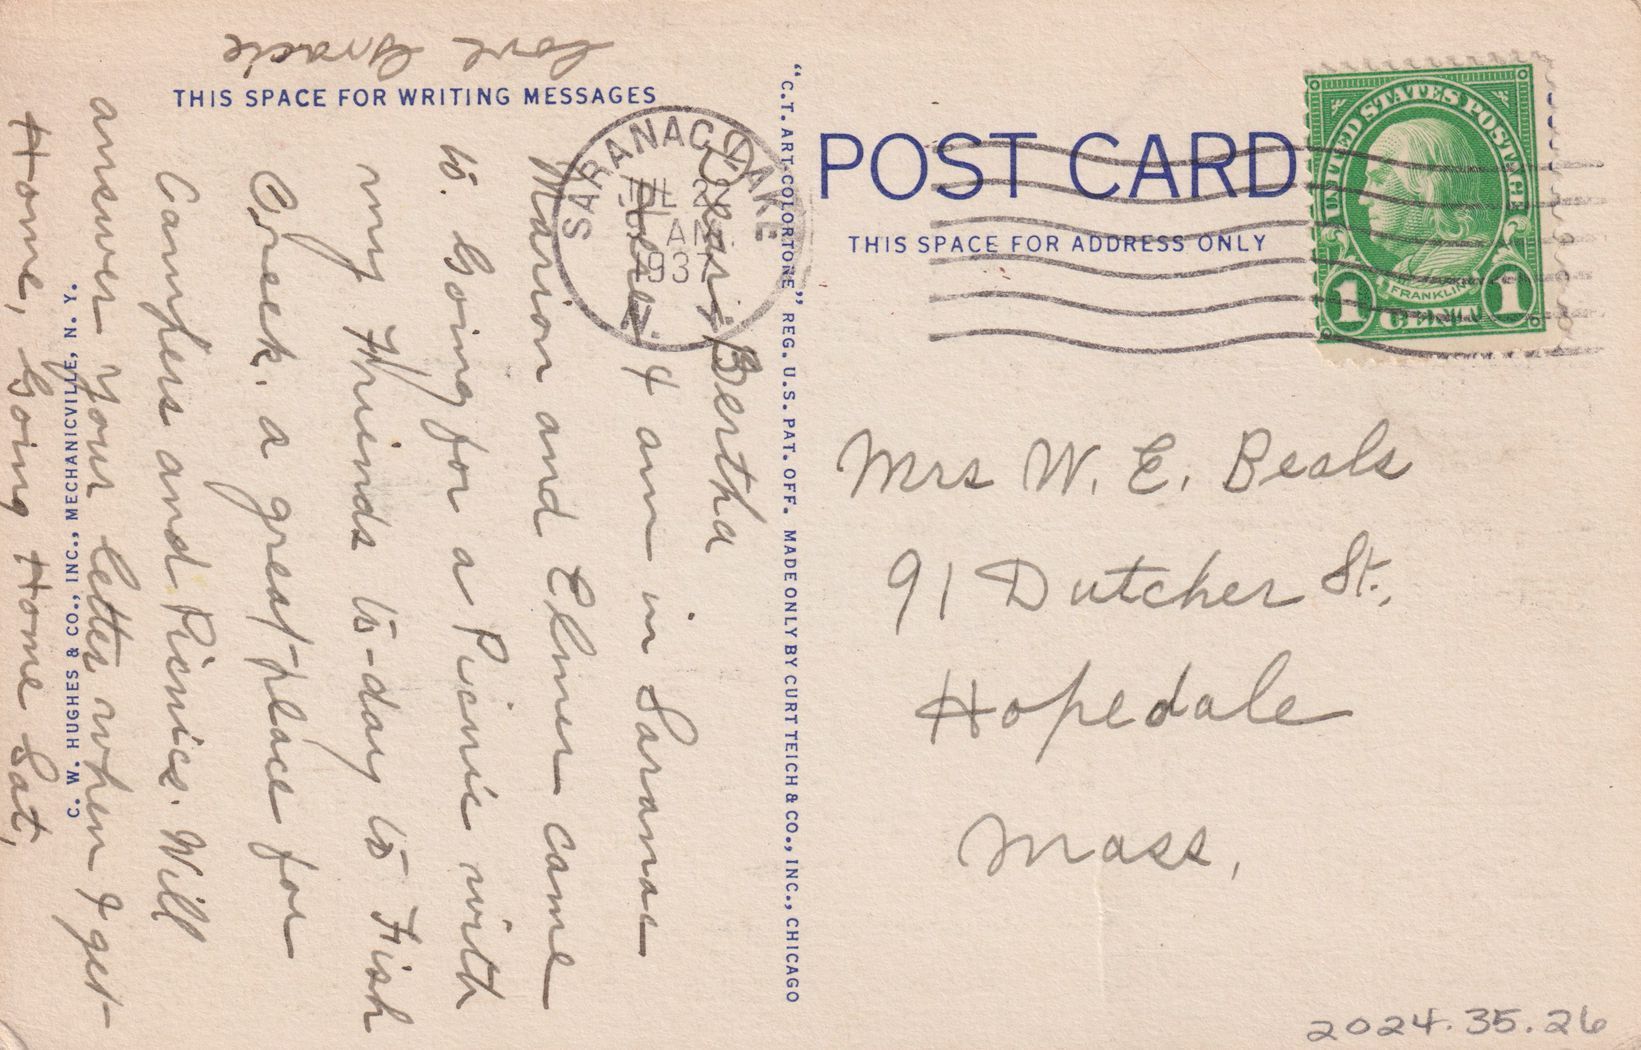 THIS SPACE FOR WRITING MESSAGES
Dear Bertha
4 am in Saranac
Marion and Elmer came
to. Going for a Picnic with
my Friends to-day to Fish
Creek. a great place for
Campers and Picnics. Will
answer your letter when I get
Home, Going Home Sat,
Love Gracie
C. W. HUGHES & CO., INC., MECHANICVILLE, N. Y.
SARANAC LAKE
JUL 2
AM
1937
N.
"C.T. ART-COLORTONE" REG. U.S. PAT. OFF. MADE ONLY BY CURT TEICH & CO., INC., CHICAGO
POST CARD
THIS SPACE FOR ADDRESS ONLY
UNITED STATES POSTAGE
FRANKLIN
1 CENT 1
Mrs W. E. Beals
91 Dutcher St.,
Hopedale
Mass,
2024.35.26